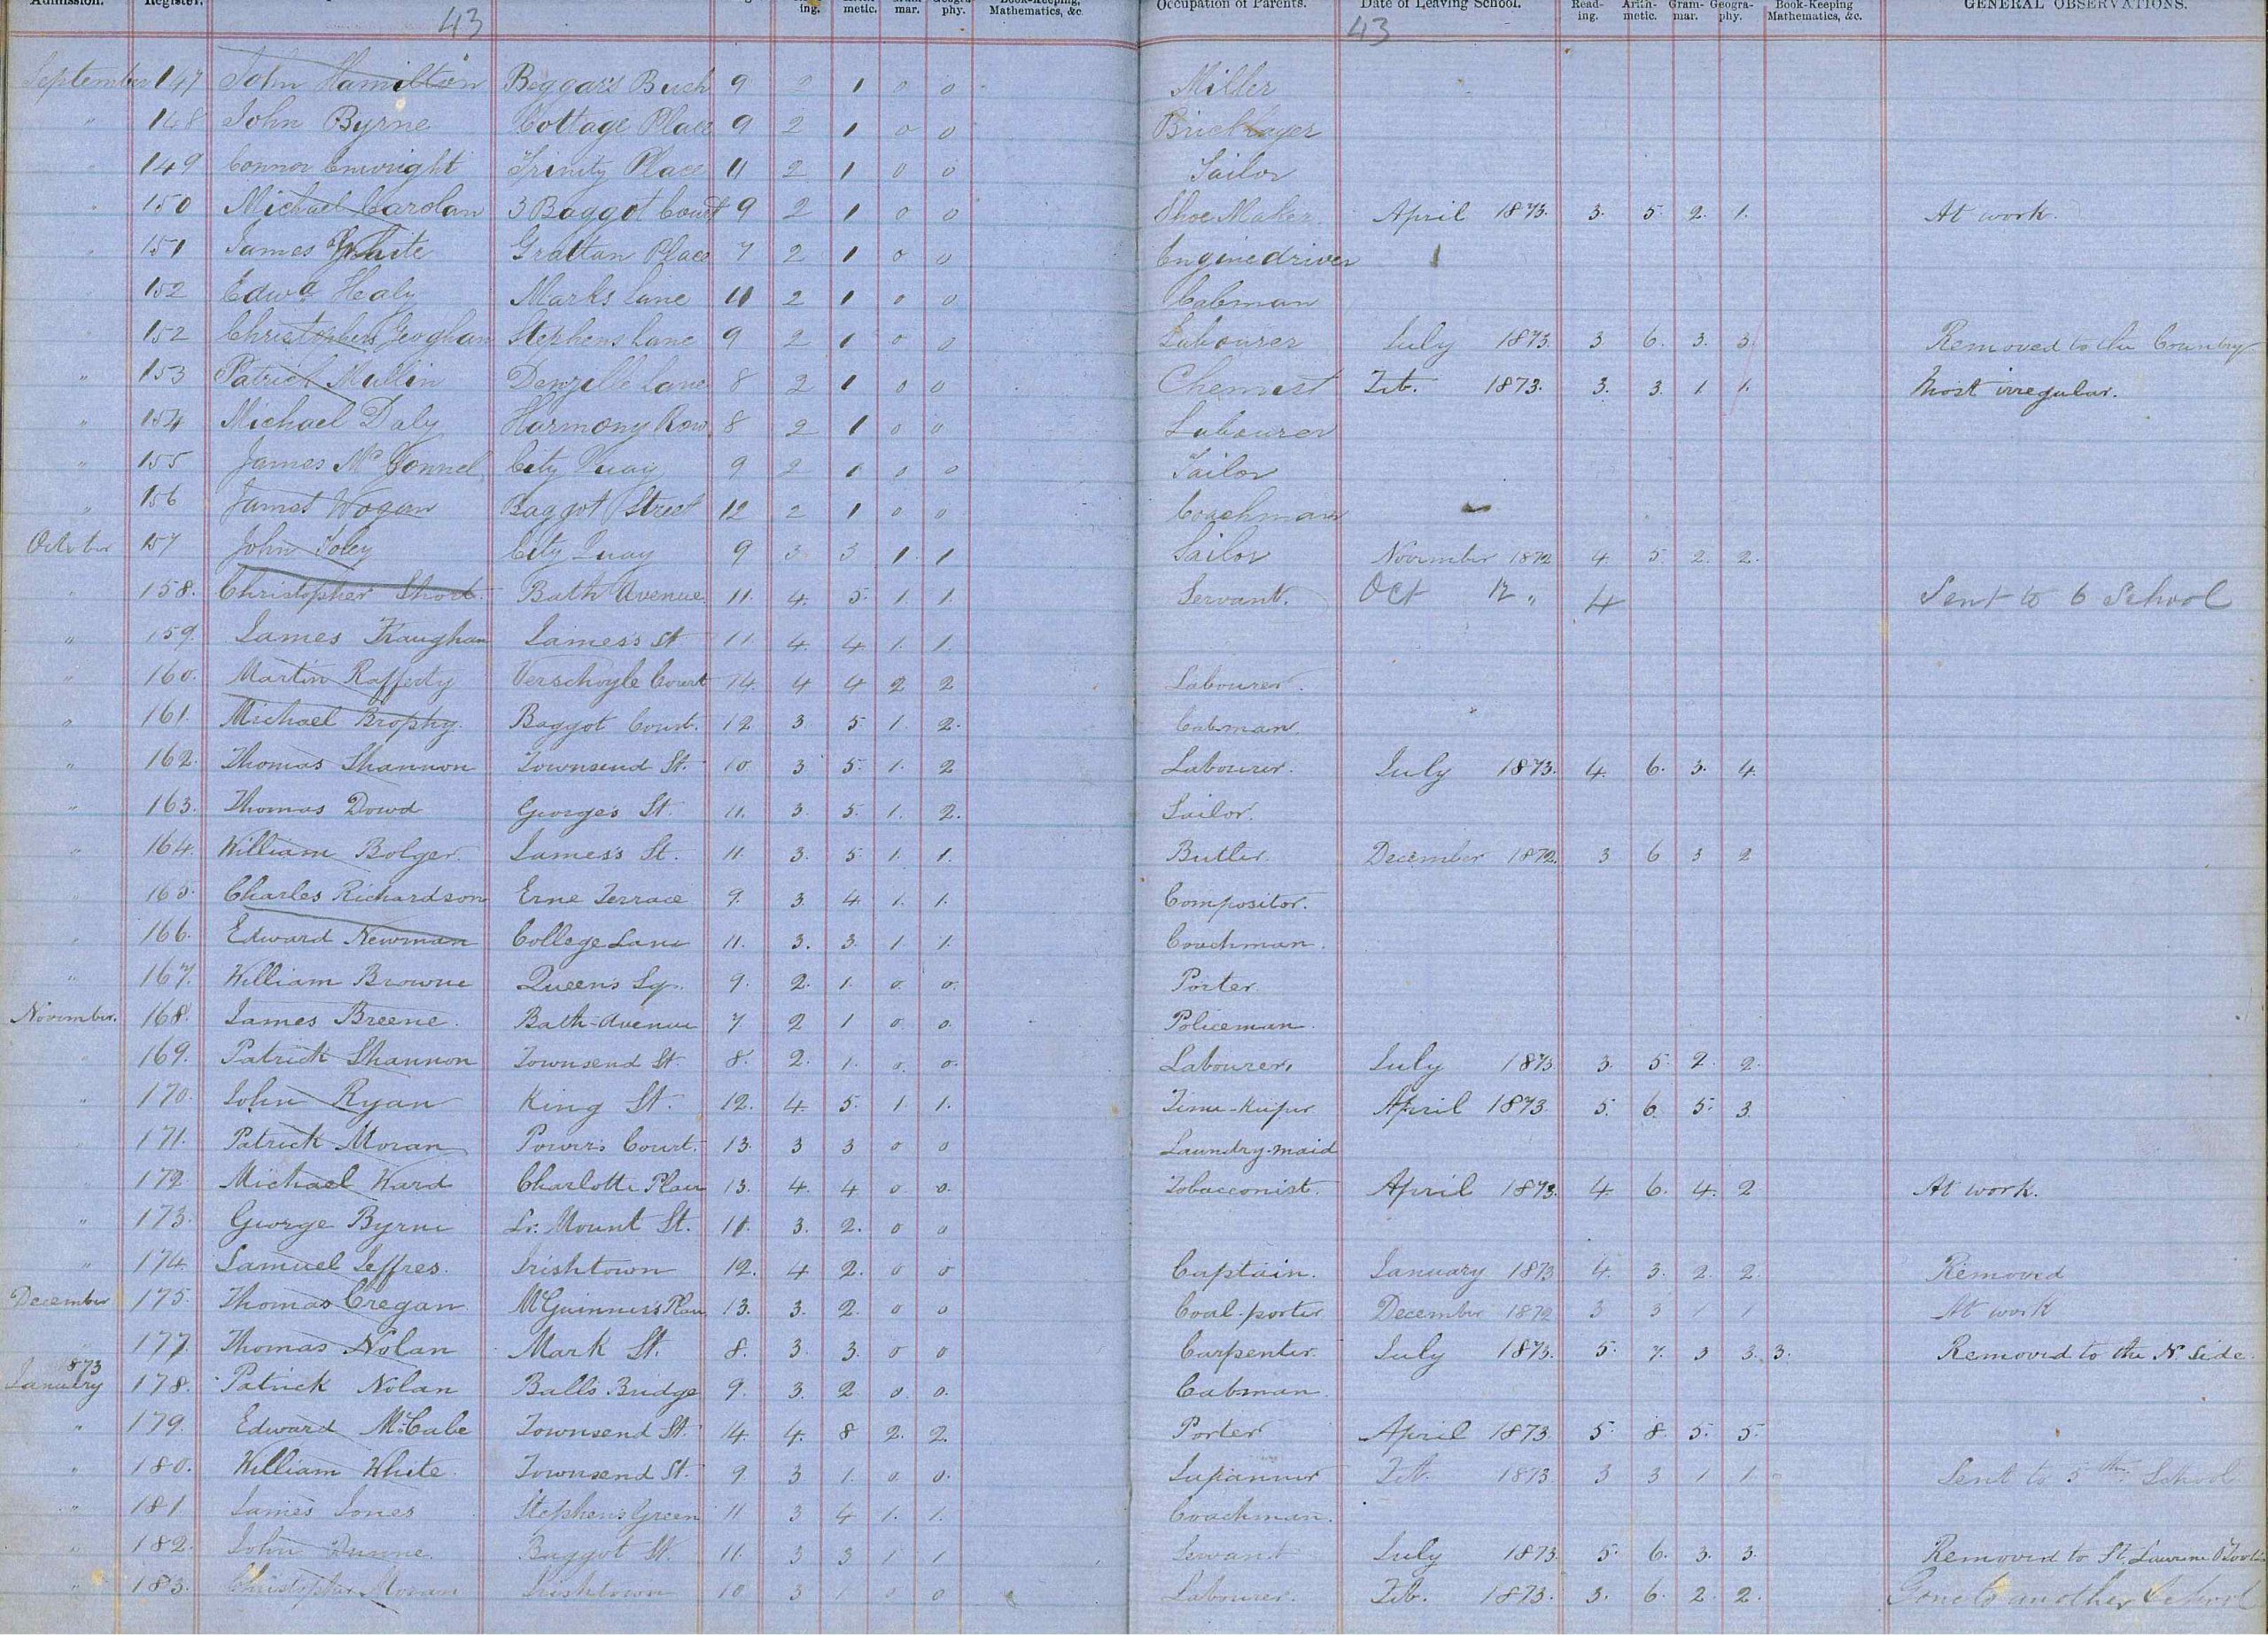 Admission. Register. ing. metic. mar. phy. Book-Keeping, Mathematics, &c Occupation of Parents. Date of Leaving School. Read-ing. Arith-metic. Gram-mar. Geogra-phy. Book-Keeping Mathematics, &c. GENERAL OBSERVATIONS.
43 43
September 147 John Hamilton Beggars Bush 9 2 1 0 0 Miller
" 148 John Byrne Cottage Place 9 2 1 0 0 Bricklayer
149 Connor Enwright Trinity Place 11 2 1 0 0 Sailor
150 Michael Carolan 3 Baggot Court 9 2 1 0 0 Shoe Maker April 1873. 3. 5. 2. 1. At work.
151 James White Grattan Place 7 2 1 0 0 Enginedriver
152 Edwd Healy Marks Lane 11 2 1 0 0 Cabman
152 Christophers Geoghan Stephens Lane 9 2 1 0 0 Labourer July 1873. 3 6. 3. 3. Removed to the Country
" 153 Patrick Mullin Denzille Lane 8 2 1 0 0 Chemist Feb. 1873. 3. 3. 1. 1. Most irregular.
" 154 Michael Daly Harmony Row 8 2 1 0 0 Labourer
" 155 James Mc Connel City Quay 9 2 1 0 0 Tailor
" 156 James Wogan Baggot Street 12 2 1 0 0 Coachman
October 157 John Foley City Quay 9 3 3 1. 1 Sailor November 1872 4. 5. 2. 2.
" 158. Christopher Short. Bath Avenue. 11. 4. 5. 1. 1. Servant. Oct 12 " 4 Sent to 6 School
" 159. James Traughan James's St 11. 4. 4. 1. 1.
" 160. Martin Rafferty Verschoyle Court 14. 4 4 2 2 Labourer.
" 161. Michael Brophy. Baggot Court. 12 3. 5. 1. 2. Cabman.
" 162. Thomas Shannon Townsend St. 10. 3 5. 1. 2 Labourer. July 1873. 4. 6. 3. 4.
" 163. Thomas Dowd George's St. 11. 3. 5. 1. 2. Sailor.
" 164. William Bolger. James's St. 11. 3. 5. 1. 1. Butler. December 1872. 3 6 3 2
" 165. Charles Richardson Erne Terrace 9. 3. 4. 1. 1. Compositor.
" 166. Edward Newman College Lane 11. 3. 3. 1. 1. Coachman.
" 167. William Browne Queen's Sq. 9. 2. 1. 0. 0. Porter.
November. 168. James Breene. Bath-avenue 7 2 1 0. 0. Policeman.
" 169. Patrick Shannon Townsend St. 8. 2. 1. 0. 0. Labourer. July 1873 3. 5. 2. 2.
" 170. John Ryan King St. 12. 4. 5. 1. 1. Time-keeper April 1873. 5. 6. 5. 3.
" 171. Patrick Moran Power's Court. 13. 3 3 0 0 Laundry-maid
" 172 Michael Ward Charlotte Place 13. 4. 4 0 0. Tobacconist. April 1873. 4. 6. 4. 2 At work.
" 173. George Byrne Lr. Mount St. 11. 3. 2. 0 0
" 174. Samuel Jeffres. Irishtown 12. 4 2. 0 0 Captain. January 1873 4. 3. 2. 2. Removed
December 175. Thomas Cregan McGuinness's Place 13. 3. 2. 0 0 Coal-porter December 1872 3 3 1 1 At work
177. Thomas Nolan Mark St. 8. 3. 3. 0 0 Carpenter. July 1873. 5. 7. 3 3. 3. Removed to the N. side.
873
January 178. Patrick Nolan Balls Bridge 9. 3. 2 0. 0. Cabman.
" 179. Edward McCabe Townsend St. 14. 4. 8 2. 2. Porter April 1873. 5. 8. 5. 5.
" 180. William White. Townsend St. 9. 3 1. 0. 0. Japanner Feb. 1873 3 3 1 1. Sent to 5th School
" 181. James Jones Stephen's Green 11. 3 4 1. 1. Coachman.
" 182. John Dunne. Baggot St. 11. 3 3 1 1 Servant July 1873. 5. 6. 3. 3. Removed to St. Laurence
" 183. Christopher Moran Irishtown 10 3 1 0 0 Labourer. Feb. 1873. 3. 6. 2. 2. Gone to another School